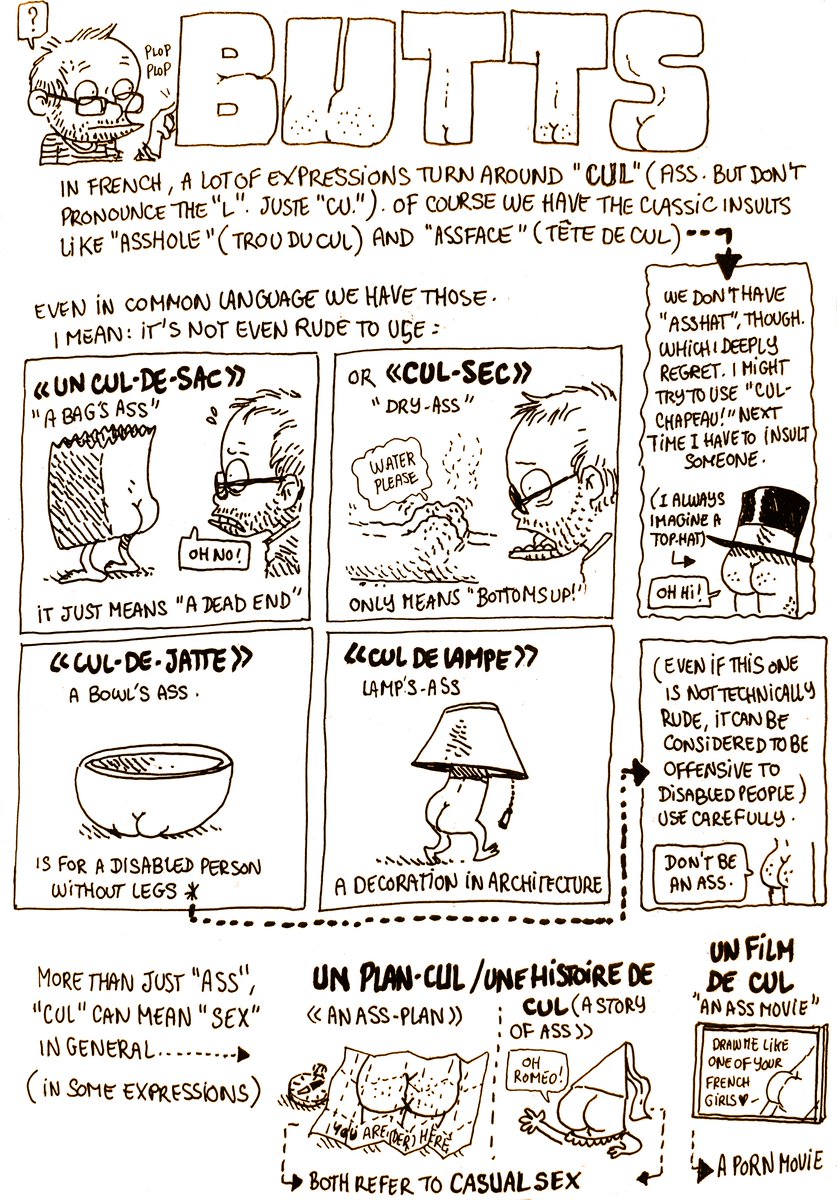 ?
PLOP
PLOP
BUTTS
IN FRENCH, A LOT OF EXPRESSIONS TURN AROUND "CUL" (ASS. BUT DON'T
PRONOUNCE THE "L". JUSTE "CU."). OF COURSE WE HAVE THE CLASSIC INSULTS
LIKE "ASSHOLE" (TROU DU CUL) AND "ASSFACE" (TÊTE DE CUL)
WE DON'T HAVE
"ASSHAT", THOUGH.
WHICH I DEEPLY
REGRET. I MIGHT
TRY TO USE "CUL-
CHAPEAU!" NEXT
TIME I HAVE TO INSULT
SOMEONE.
(I ALWAYS
IMAGINE A
TOP-HAT)
OH HI!
EVEN IN COMMON LANGUAGE WE HAVE THOSE.
I MEAN: IT'S NOT EVEN RUDE TO USE:
«UN CUL-DE-SAC»
"A BAG'S ASS"
OH NO!
IT JUST MEANS "A DEAD END"
OR «CUL-SEC»
"DRY-ASS"
WATER
PLEASE
ONLY MEANS "BOTTOMS UP!"
«CUL-DE-JATTE»
A BOWL'S ASS.
IS FOR A DISABLED PERSON
WITHOUT LEGS *
«CUL DE LAMPE»
LAMP'S-ASS
A DECORATION IN ARCHITECTURE
(EVEN IF THIS ONE
IS NOT TECHNICALLY
RUDE, IT CAN BE
CONSIDERED TO BE
OFFENSIVE TO
DISABLED PEOPLE)
USE CAREFULLY.
DON'T BE
AN ASS.
MORE THAN JUST "ASS",
"CUL" CAN MEAN "SEX"
IN GENERAL
(IN SOME EXPRESSIONS)
UN PLAN-CUL / UNE HISTOIRE DE
CUL (A STORY
OF ASS»
«AN ASS-PLAN»
YOU ARE (DER) HERE
OH
ROMÉO!
BOTH REFER TO CASUAL SEX
UN FILM
DE CUL
"AN ASS MOVIE"
DRAW ME LIKE
ONE OF YOUR
FRENCH
GIRLS ♥
A PORN MOVIE